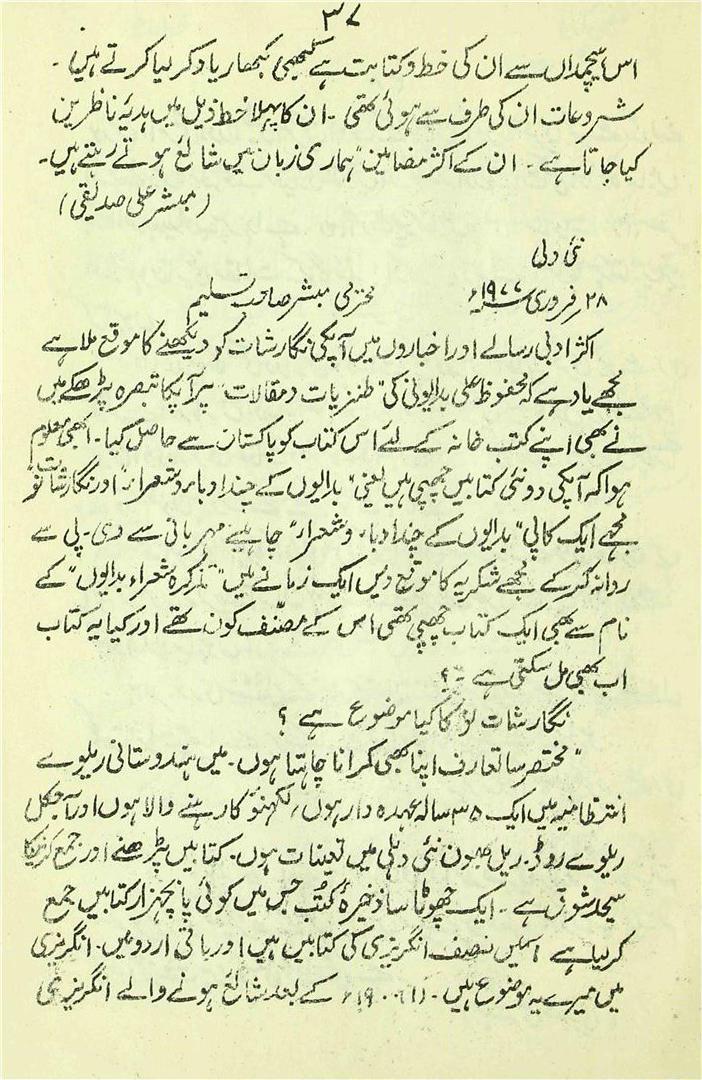 ۳۷
اس ہیچمداں سے ان کی خط و کتابت ہے کبھی کبھار یاد کر لیا کرتے ہیں ۔
شروعات ان کی طرف سے ہوئی تھی ۔ ان کا پہلا خط ذیل میں ہدیۂ ناظرین
کیا جاتا ہے ۔ ان کے اکثر مضامین "ہماری زبان میں شائع ہوتے رہتے ہیں ۔
(مبشر علی صدیقی)
نئی دلی
۲۸ فروری ۱۹۷۷ء محترمی مبشر صاحب تسلیم
اکثر ادبی رسالے اور اخباروں میں آپکی نگارشات کو دیکھنے کا موقع ملا ہے
مجھے یاد ہے کہ محفوظ علی بدایونی کی "طنزیات و مقالات" پر آپکا تبصرہ پڑھکے میں
نے بھی اپنے کتب خانہ کے لئے اس کتاب کو پاکستان سے حاصل کیا ۔ ابھی معلوم
ہوا کہ آپکی دو نئی کتابیں چھپی ہیں یعنی "بدایوں کے چند ادباء و شعراء" اور نگارشات نو
مجھے ایک کاپی "بدایوں کے چند ادباء و شعراء" چاہیے مہربانی سے وی ۔ پی سے
روانہ کر کے مجھے شکریہ کا موقع دیں ایک زمانے میں "تذکرہ شعراء بدایوں" کے
نام سے بھی ایک کتاب چھپی تھی اس کے مصنّف کون تھے اور کیا یہ کتاب
اب بھی مل سکتی ہے ؟
نگارشات نو کا کیا موضوع ہے ؟
"مختصر سا تعارف اپنا بھی کرانا چاہتا ہوں ۔ میں ہندوستانی ریلوے
انتظامیہ میں ایک ۳۵ سالہ عہدہ دار ہوں، لکھنؤ کا رہنے والا ہوں اور آجکل
ریلوے روڈ ۔ ریل بھون نئی دہلی میں تعینات ہوں ۔ کتابیں پڑھنے اور جمع کرنیکا
بیحد شوق ہے ۔ ایک چھوٹا سا ذخیرۂ کتُب جس میں کوئی پانچہزار کتابیں جمع
کر لیا ہے اسمیں نصف انگریزی کی کتابیں ہیں اور باقی اردو میں ۔ انگریزی
میں میرے یہ موضوع ہیں ۔ (۱) ۱۹۰۰ء کے بعد شائع ہونے والے انگریزی